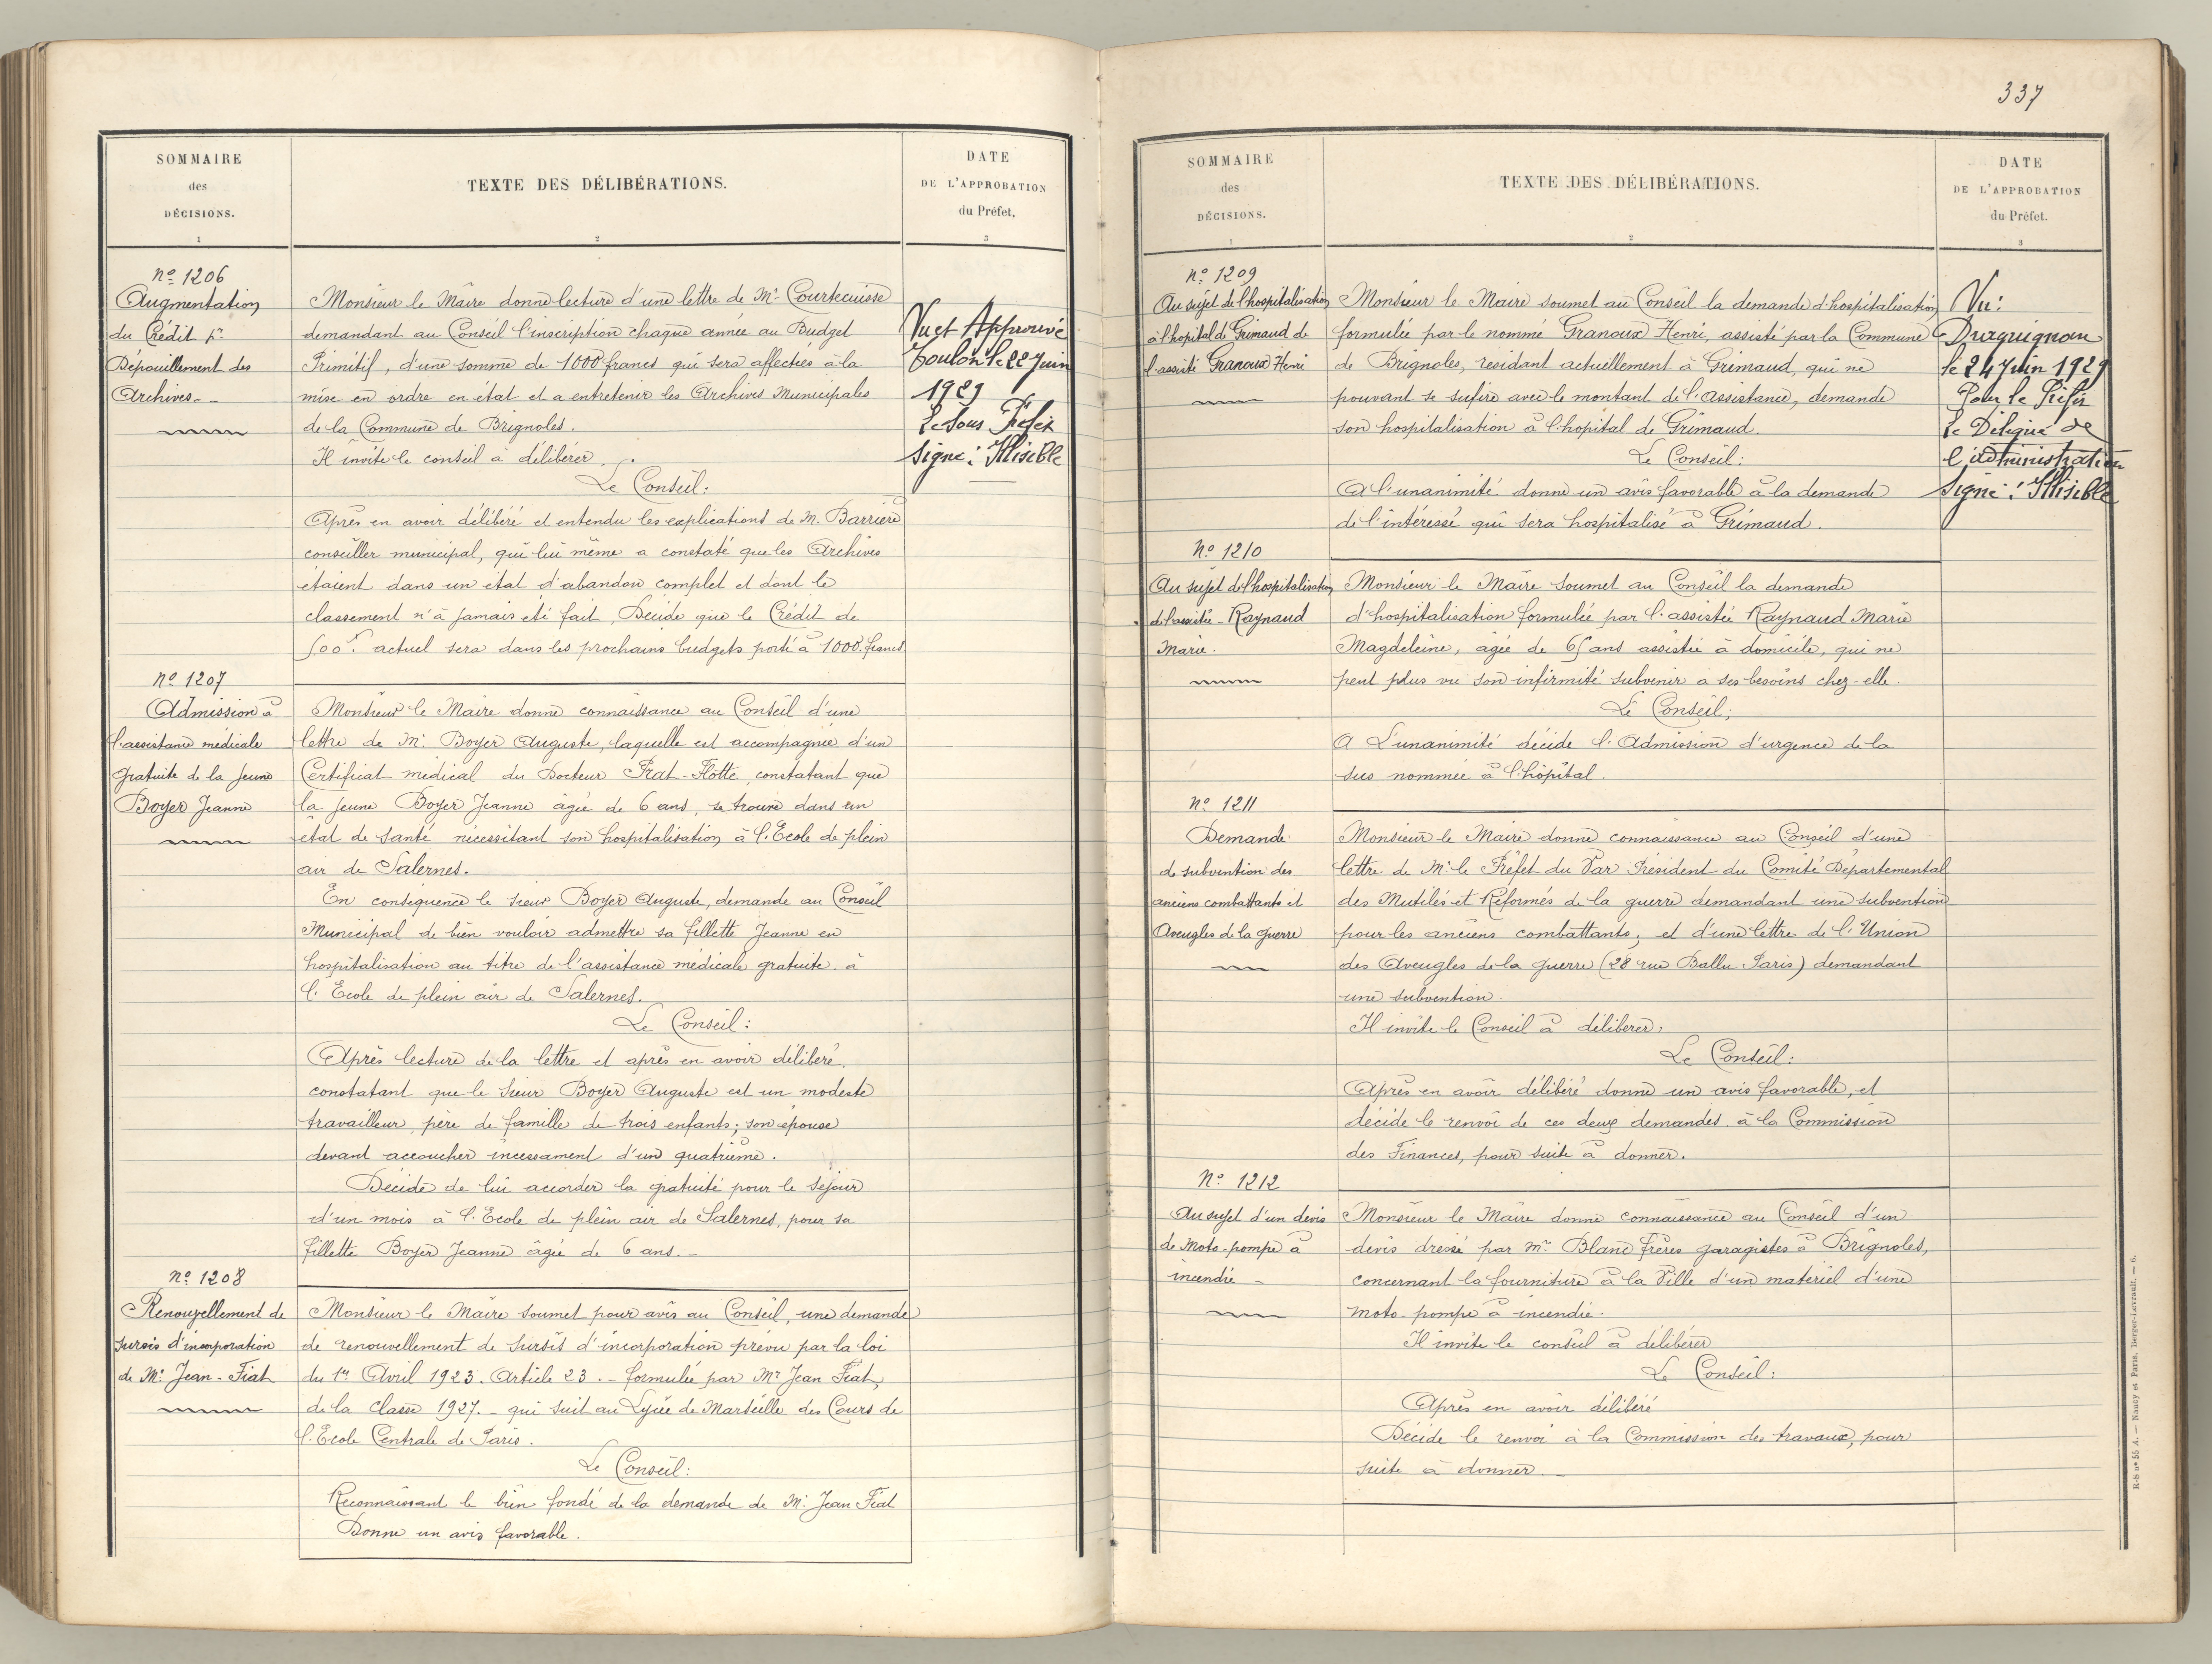 337
SOMMAIRE
des
DÉCISIONS.
1
TEXTE DES DÉLIBÉRATIONS.
2
DATE
DE L'APPROBATION
du Préfet,
3
Nº 1206
Augmentation
du Crédit pr
Dépouillement des
Archives. -
Monsieur le Maire donne lecture d'une lettre de Mr Courtecuisse
demandant au Conseil l'inscription chaque année au Budget
Primitif, d'une somme de 1000 francs qui sera affectées à la
mise en ordre en état et a entretenir les Archives Municipales
de la Commune de Brignoles.
Il invite le conseil à délibérer.
Le Conseil:
Après en avoir délibéré et entendu les explications de M. Barrière
conseiller municipal, qui lui même a constaté que les Archives
étaient dans un état d'abandon complet et dont le
classement n'à jamais été fait, Décide que le Crédit de
500f. actuel sera dans les prochains budgets porté à 1000 francs.
Vu et Approuvé
Toulon le 22 Juin
1929
Le Sous Préfet
Signé: Illisible
Nº 1207
Admission à
l'assistance médicale
gratuite de la jeune
Boyer Jeanne
Monsieur le Maire donne connaissance au Conseil d'une
lettre de Mr. Boyer Auguste, laquelle est accompagnée d'un
Certificat médical du Docteur Frat-Flotte, constatant que
la jeune Boyer Jeanne âgée de 6 ans, se trouve dans un
état de Santé nécessitant son hospitalisation à l'École de plein
air de Salernes.
En conséquence le sieur Boyer Auguste, demande au Conseil
Municipal de bien vouloir admettre sa fillette Jeanne en
hospitalisation au titre de l'assistance médicale gratuite à
l'École de plein air de Salernes.
Le Conseil:
Après lecture de la lettre et après en avoir délibéré.
constatant que le Sieur Boyer Auguste est un modeste
travailleur, père de famille de trois enfants; son épouse
devant accoucher incessament d'un quatrième.
Décide de lui accorder la gratuité pour le séjour
d'un mois à l'École de plein air de Salernes, pour sa
fillette Boyer Jeanne âgée de 6 ans. -
Nº 1208
Renouvellement de
sursis d'incorporation
de Mr. Jean - Fiat
Monsieur le Maire soumet pour avis au Conseil, une demande
de renouvellement de sursis d'incorporation prévu par la loi
du 1er Avril 1923. Article 23. - formulée par Mr Jean Fiat,
de la classe 1927. - qui suit au Lycée de Marseille des Cours de
l'École Centrale de Paris.
Le Conseil:
Reconnaissant le bien fondé de la demande de Mr. Jean Fiat
Donne un avis favorable.
SOMMAIRE
des
DÉCISIONS.
1
TEXTE DES DÉLIBÉRATIONS.
2
DATE
DE L'APPROBATION
du Préfet.
3
Nº 1209
Au sujet de l'hospitalisation
à l'hopital de Grimaud de
l'assisté Granoux Henri
Monsieur le Maire soumet au Conseil la demande d'hospitalisation
formulée par le nommé Granoux Henri, assisté par la Commune
de Brignoles, residant actuellement à Grimaud, qui ne
pouvant se sufire avec le montant de l'assistance, demande
son hospitalisation à l'hopital de Grimaud.
Le Conseil:
A l'unanimité donne un avis favorable à la demande
de l'intéressé qui sera hospitalisé à Grimaud.
Vu:
Draguignan
le 24 Juin 1929
Pour le Préfet
Le Délégué de
l'administration
Signé: Illisible
Nº 1210
Au sujet de l'hospitalisation
de l'assistée - Raynaud
Marie.
Monsieur le Maire soumet au Conseil la demande
d'hospitalisation formulée par l'assistée Raynaud Marie
Magdeleine, agée de 65 ans assistée à domicile, qui ne
peut plus vu son infirmité subvenir a ses besoins chez-elle.
Le Conseil;
A L'unanimité décide l'Admission d'urgence de la
sus nommée à l'hôpital.
Nº 1211
Demande
de subvention des
anciens combattants et
Aveugles de la guerre
Monsieur le Maire donne connaissance au Conseil d'une
lettre de Mr. le Préfet du Var Président du Comité Départemental
des Mutilés et Réformés de la guerre demandant une subvention
pour les anciens combattants, et d'une lettre de l'Union
des Aveugles de la Guerre (28 rue Ballu Paris) demandant
une subvention.
Il invite le Conseil à délibérer,
Le Conseil:
Après en avoir délibéré donne un avis favorable, et
décide le renvoi de ces deux demandes à la Commission
des Finances, pour suite à donner.
Nº 1212
Au sujet d'un devis
de Moto-pompe à
incendie -
Monsieur le Maire donne connaissance au Conseil d'un
devis dressé par Mrs Blanc frères garagistes à Brignoles,
concernant la fourniture à la Ville d'un matériel d'une
moto-pompe à incendie.
Il invite le conseil à délibérer
Le Conseil:
Après en avoir délibéré
Décide le renvoi à la Commission des travaux, pour
suite à donner. -
R-b nº 55 A. — Nancy et Paris, Berger-Levrault. — 6.